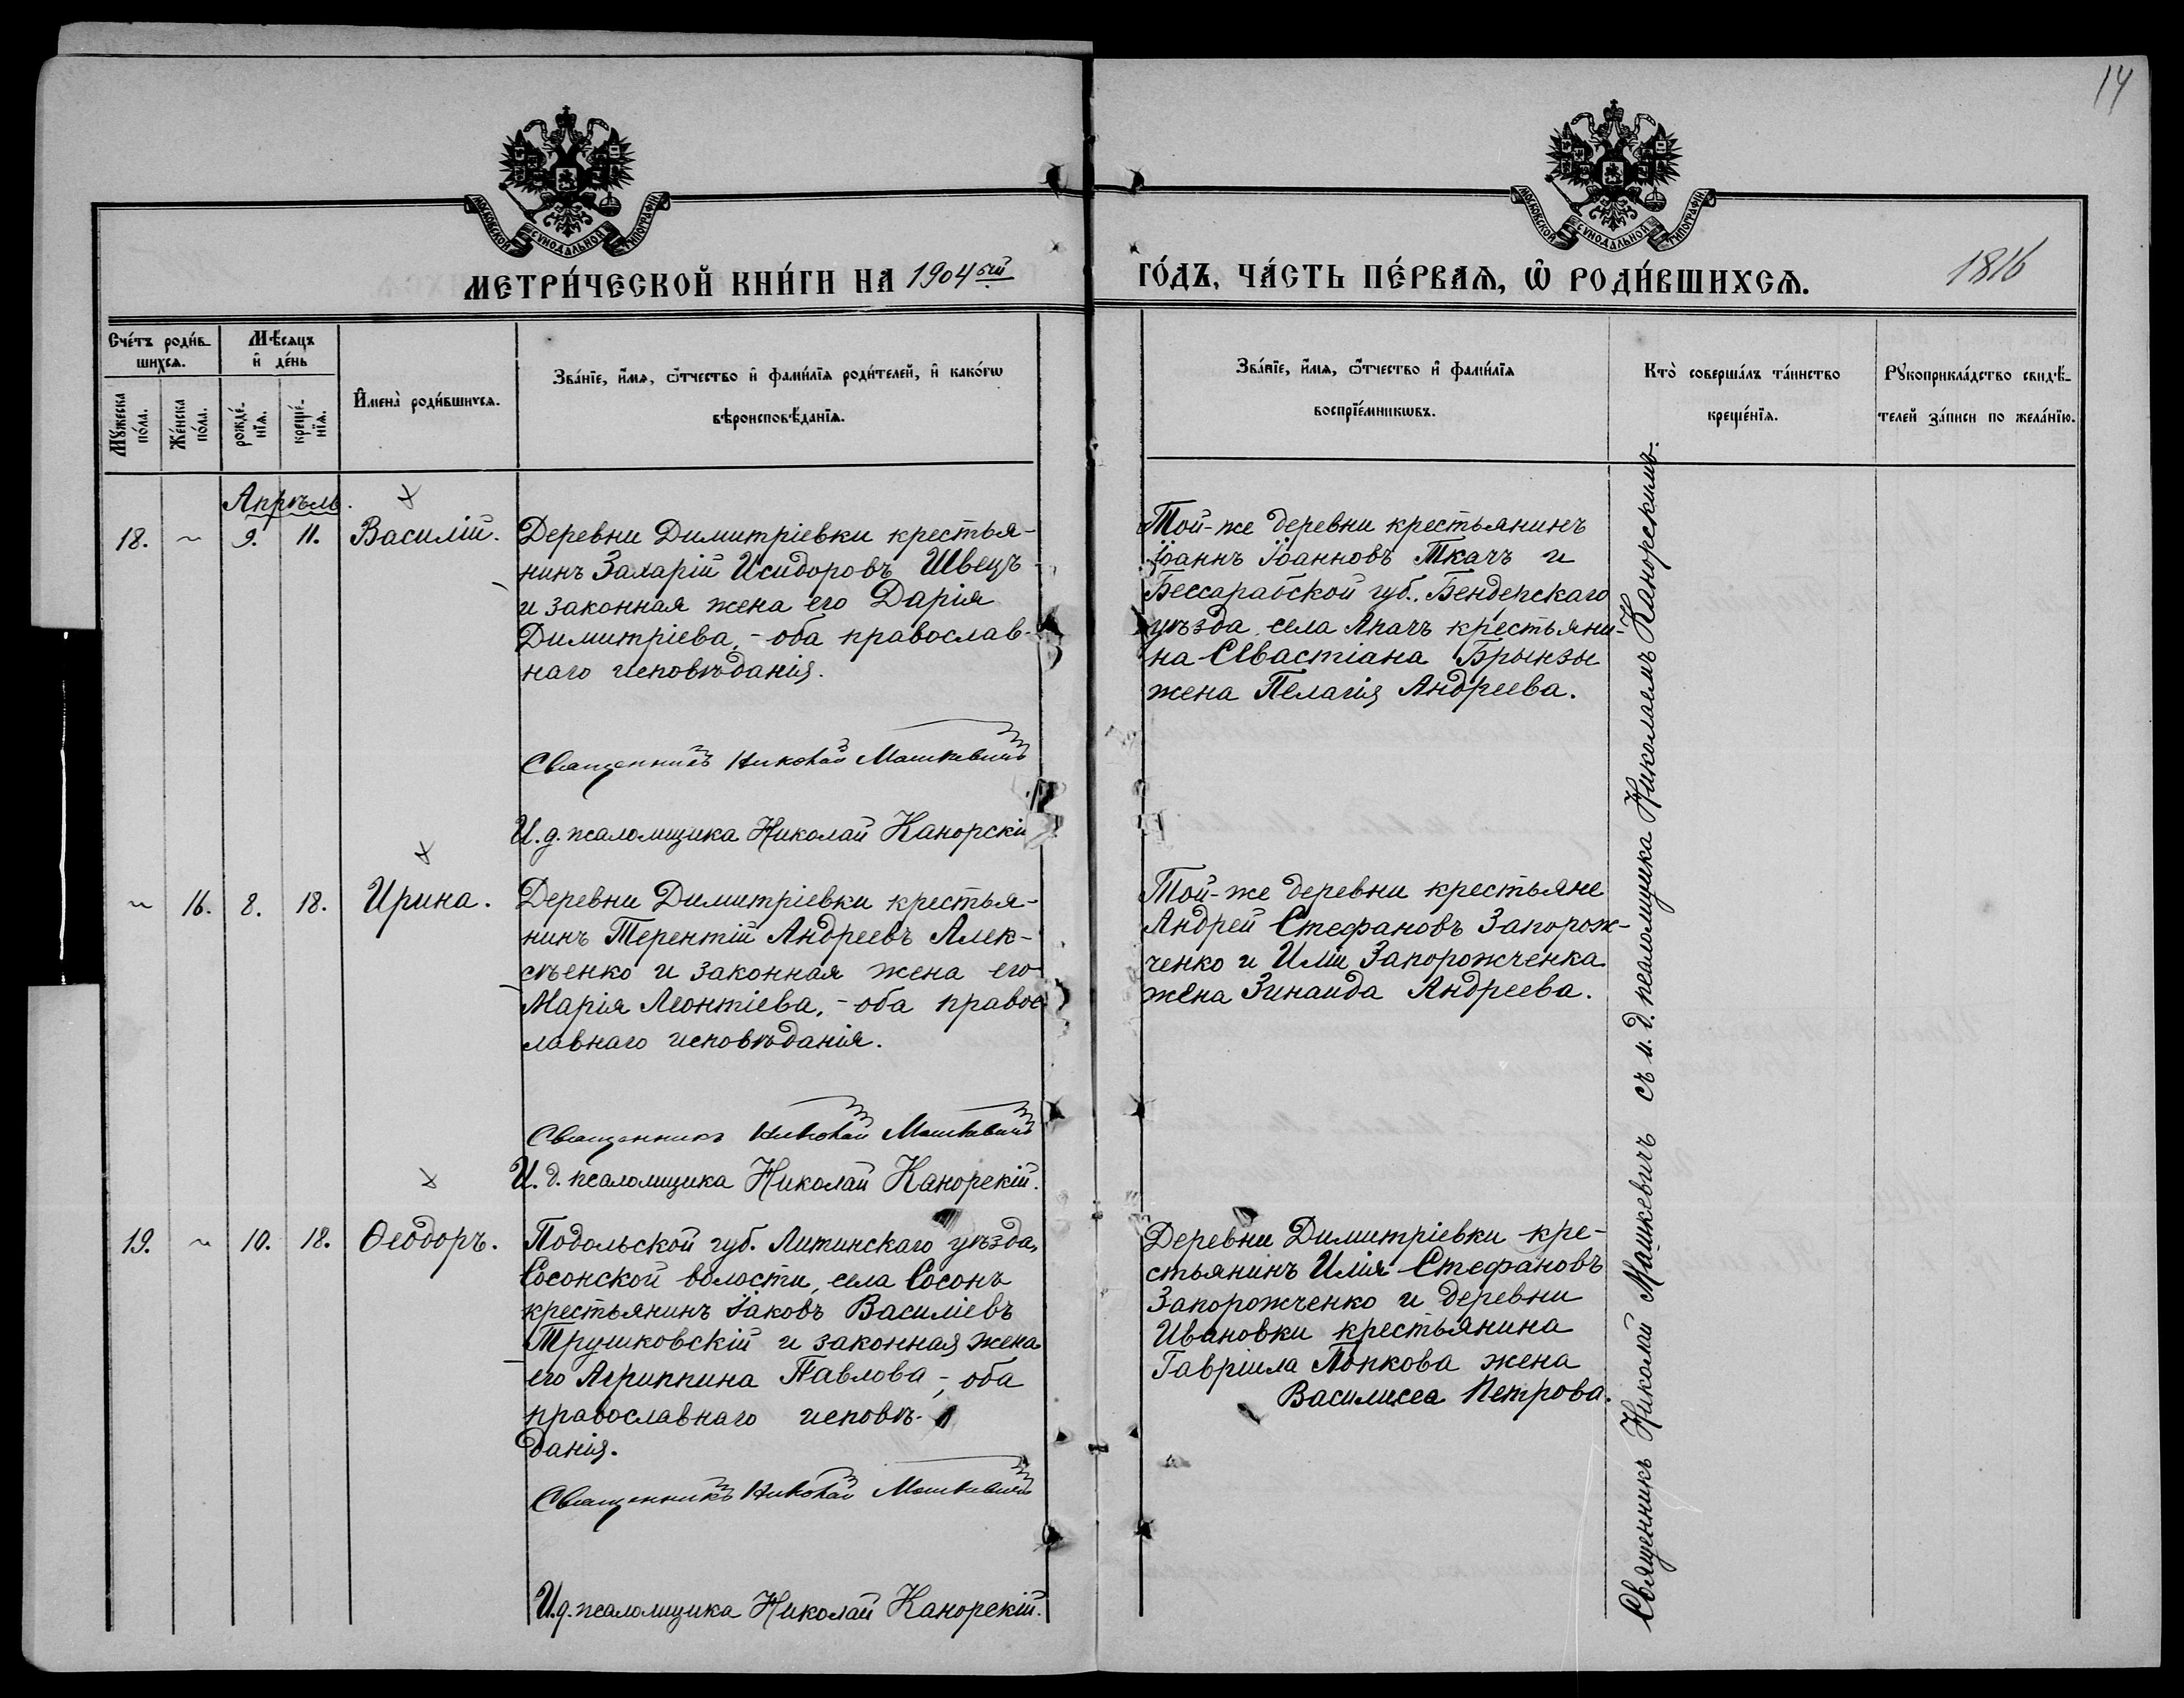 14
МОСКОВСКОЙ СѴНОДАЛЬНОЙ ТИПОГРАФІИ
МОСКОВСКОЙ СѴНОДАЛЬНОЙ ТИПОГРАФІИ
МЕТРИ́ЧЕСКОЙ КНИ́ГИ НА 1904ый ГО́ДЪ, ЧА́СТЬ ПЕ́РВАѦ, Ѡ҃ РОДИ́ВШИХСѦ.
1816
Сче́тъ роди́в-
шихсѧ.
Мꙋ́жеска по́ла.
Же́нска по́ла.
Мѣ́сѧцъ
и҆ де́нь
рожде́-
нїѧ.
креще́-
нїѧ.
И҆мена̀ роди́вшихсѧ.
Зва́нїе, и҆́мѧ, ѻ҆́тчество и҆ фами́лїѧ роди́телей, и҆ како́гѡ
вѣроисповѣ́данїѧ.
Зва́нїе, и҆́мѧ, ѻ҆́тчество и҆ фами́лїѧ
воспрїе́мникѡвъ.
Кто̀ соверша́лъ та́инство
креще́нїѧ.
Рꙋкоприкла́дство свидѣ́-
телей за́писи по жела́нїю.
Апрѣль.
18. ~ 9. 11. Василій.
Деревни Димитріевки крестья-
нинъ Захарій Исидоровъ Швецъ
и законная жена его Дарія
Димитріева, - оба православ-
наго исповѣданія.
Священникъ Николай Машкевичъ
И. д. псаломщика Николай Канорскій
Той-же деревни крестьянинъ
Іоаннъ Іоанновъ Ткачъ и
Бессарабской губ. Бендерскаго
уѣзда села Акачъ крестьяни-
на Севастіана Брынзы
жена Пелагія Андреева.
~ 16. 8. 18. Ирина.
Деревни Димитріевки крестья-
нинъ Терентій Андреевъ Алек-
сѣенко и законная жена его
Марія Леонтіева, - оба правос-
лавнаго исповѣданія.
Священникъ Николай Машкевичъ
И. д. псаломщика Николай Канорскій.
Той-же деревни крестьяне
Андрей Стефановъ Запорож-
ченко и Иліи Запорожченка
жена Зинаида Андреева.
19. ~ 10. 18. Ѳеодоръ.
Подольской губ. Литинскаго уѣзда,
Сосонской волости, села Сосонъ
крестьянинъ Іаковъ Василіевъ
Трушковскій и законная жена
его Агриппина Павлова -, оба
православнаго исповѣ-
данія.
Священникъ Николай Машкевичъ
И. д. псаломщика Николай Канорскій.
Деревни Димитріевки кре-
стьянинъ Илія Стефановъ
Запорожченко и деревни
Ивановки крестьянина
Гавріила Попкова жена
Василисса Петрова.
Священникъ Николай Машкевичъ съ и. д. псаломщика Николаемъ Канорскимъ.